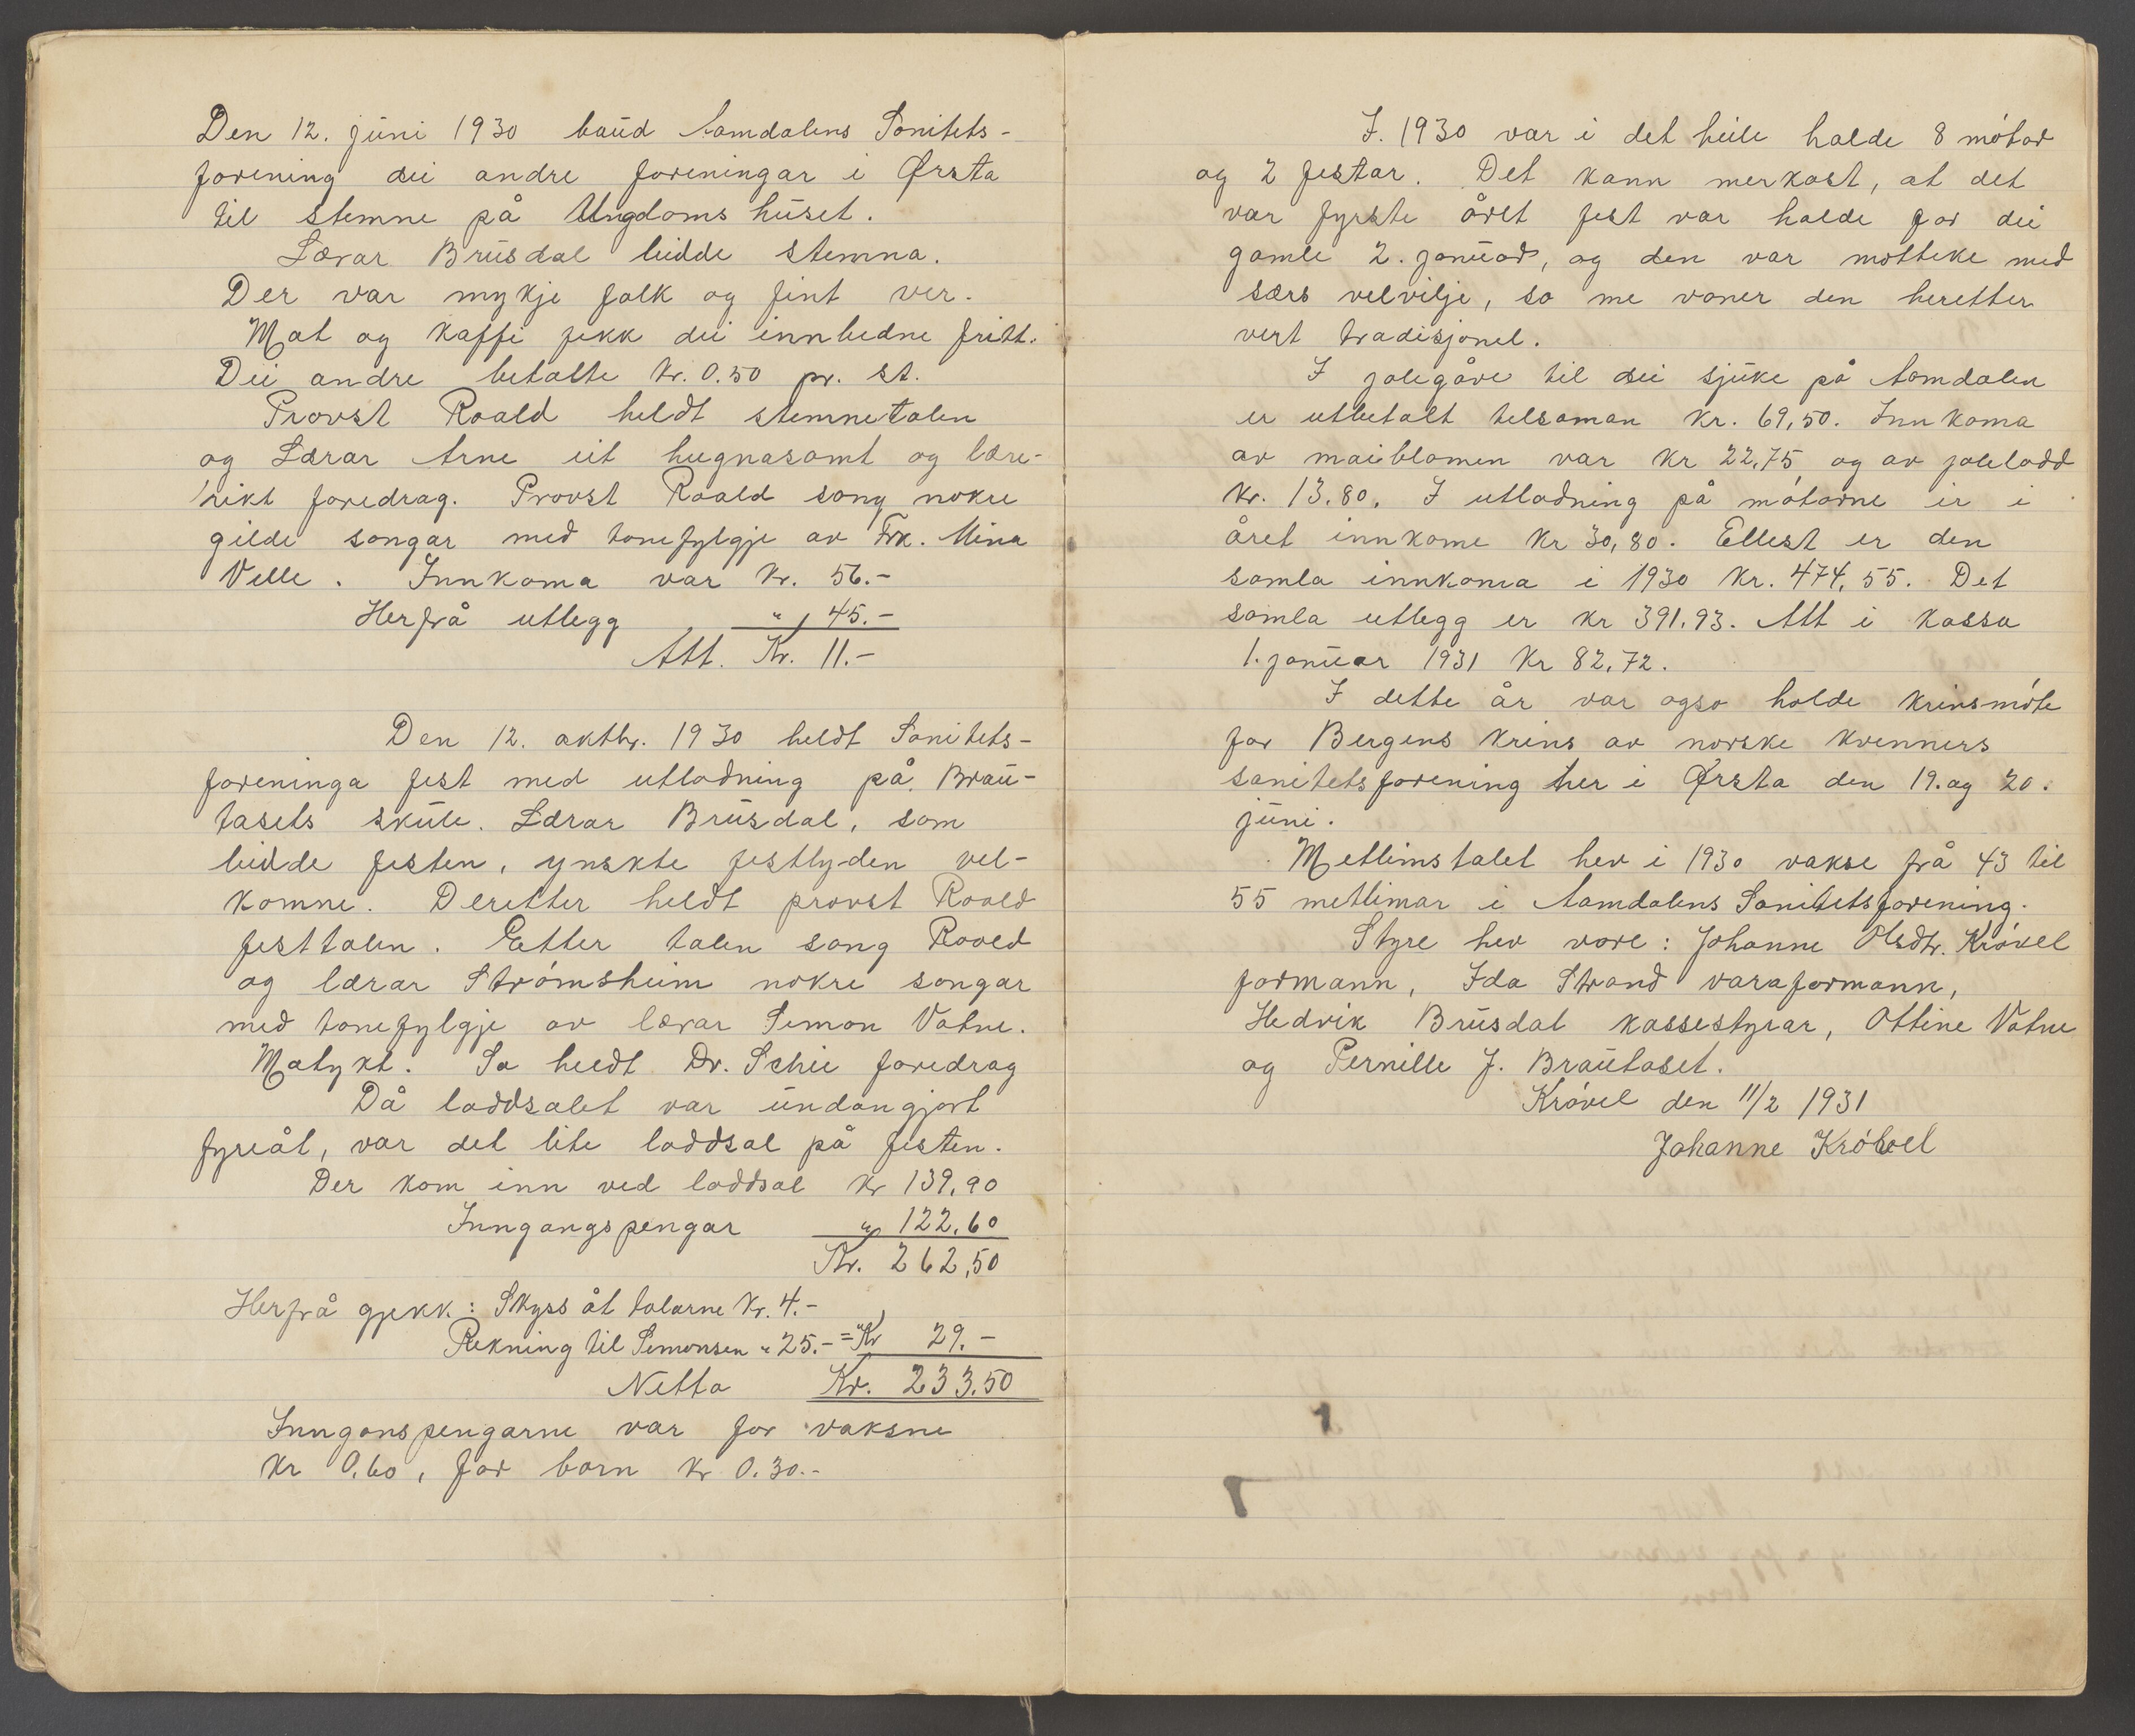 Den 12. juni 1930 baud Aamdalens Sanitets-
forening dei andre foreningar i Ørsta
til stemne på Ungdomshuset.
Lærar Brusdal leidde stemna.
Der var mykje folk og fint ver.
Mat og kaffi fekk dei innbedne fritt.
Dei andre betalte kr. 0.50 pr. st.
Provst Roald heldt stemnetalen
og Lærar Arne eit hugnasamt og lære-
rikt foredrag. Provst Roald song nokre
gilde songar med tonefylgje av Frk. Mina
Velle. Innkoma var kr. 56.-
Herfrå utlegg " 45.-
Att. Kr. 11.-
Den 12. oktbr. 1930 heldt Sanitets-
foreninga fest med utlodning på Brau-
tasets skule. Lærar Brusdal, som
leidde festen, ynskte festlyden vel-
komne. Deretter heldt provst Roald
festtalen. Etter talen song Roald
og lærar Strómsheim nokre songar
med tonefylgje av lærar Simon Vatne.
Matykt. So heldt Dr. Schei foredrag
Då loddsalet var undangjort
fyreåt, var det lite loddsal på festen.
Der kom inn ved loddsal kr 139,90
Inngangspengar " 122.60
Kr. 262,50
Herfrå gjekk: Skyss åt talarne kr. 4.-
Rekning til Simonsen " 25.- = Kr 29.-
Netto Kr. 233.50
Inngonspengarne var for vaksne
Kr 0.60, for born kr 0.30.-
I. 1930 var i det heile halde 8 mótar
og 2 festar. Det kann merkast, at det
var fyrste året fest var halde for dei
gamle 2. januar, og den var motteke med
særs velvilje, so me voner den heretter
vert tradisjonel.
I jolegåve til dei sjuke på Aamdalen
er utbetalt tilsaman Kr. 69,50. Innkoma
av maiblomen var Kr 22,75 og av jolelodd
Kr. 13.80. I utlodning på mótarne er i
året innkome Kr 30,80. Ellest er den
samla innkoma i 1930 Kr. 474,55. Det
samla utlegg er kr 391.93. Att i kassa
1. januar 1931 Kr 82,72.
I dette år var ogso halde krinsmóte
for Bergens krins av norske kvenners
sanitetsforening her i Ørsta den 19. og 20.
juni.
Metlimstalet hev i 1930 vakse frå 43 til
55 metlimar i Aamdalens Sanitetsforening.
Styre hev vore: Johanne Olsdtr. Króvel
formann, Ida Strand varaformann,
Hedvik Brusdal kassestyrar, Ottine Vatne
og Pernille J. Brautaset.
Króvel den 11/2 1931
Johanne Króvel